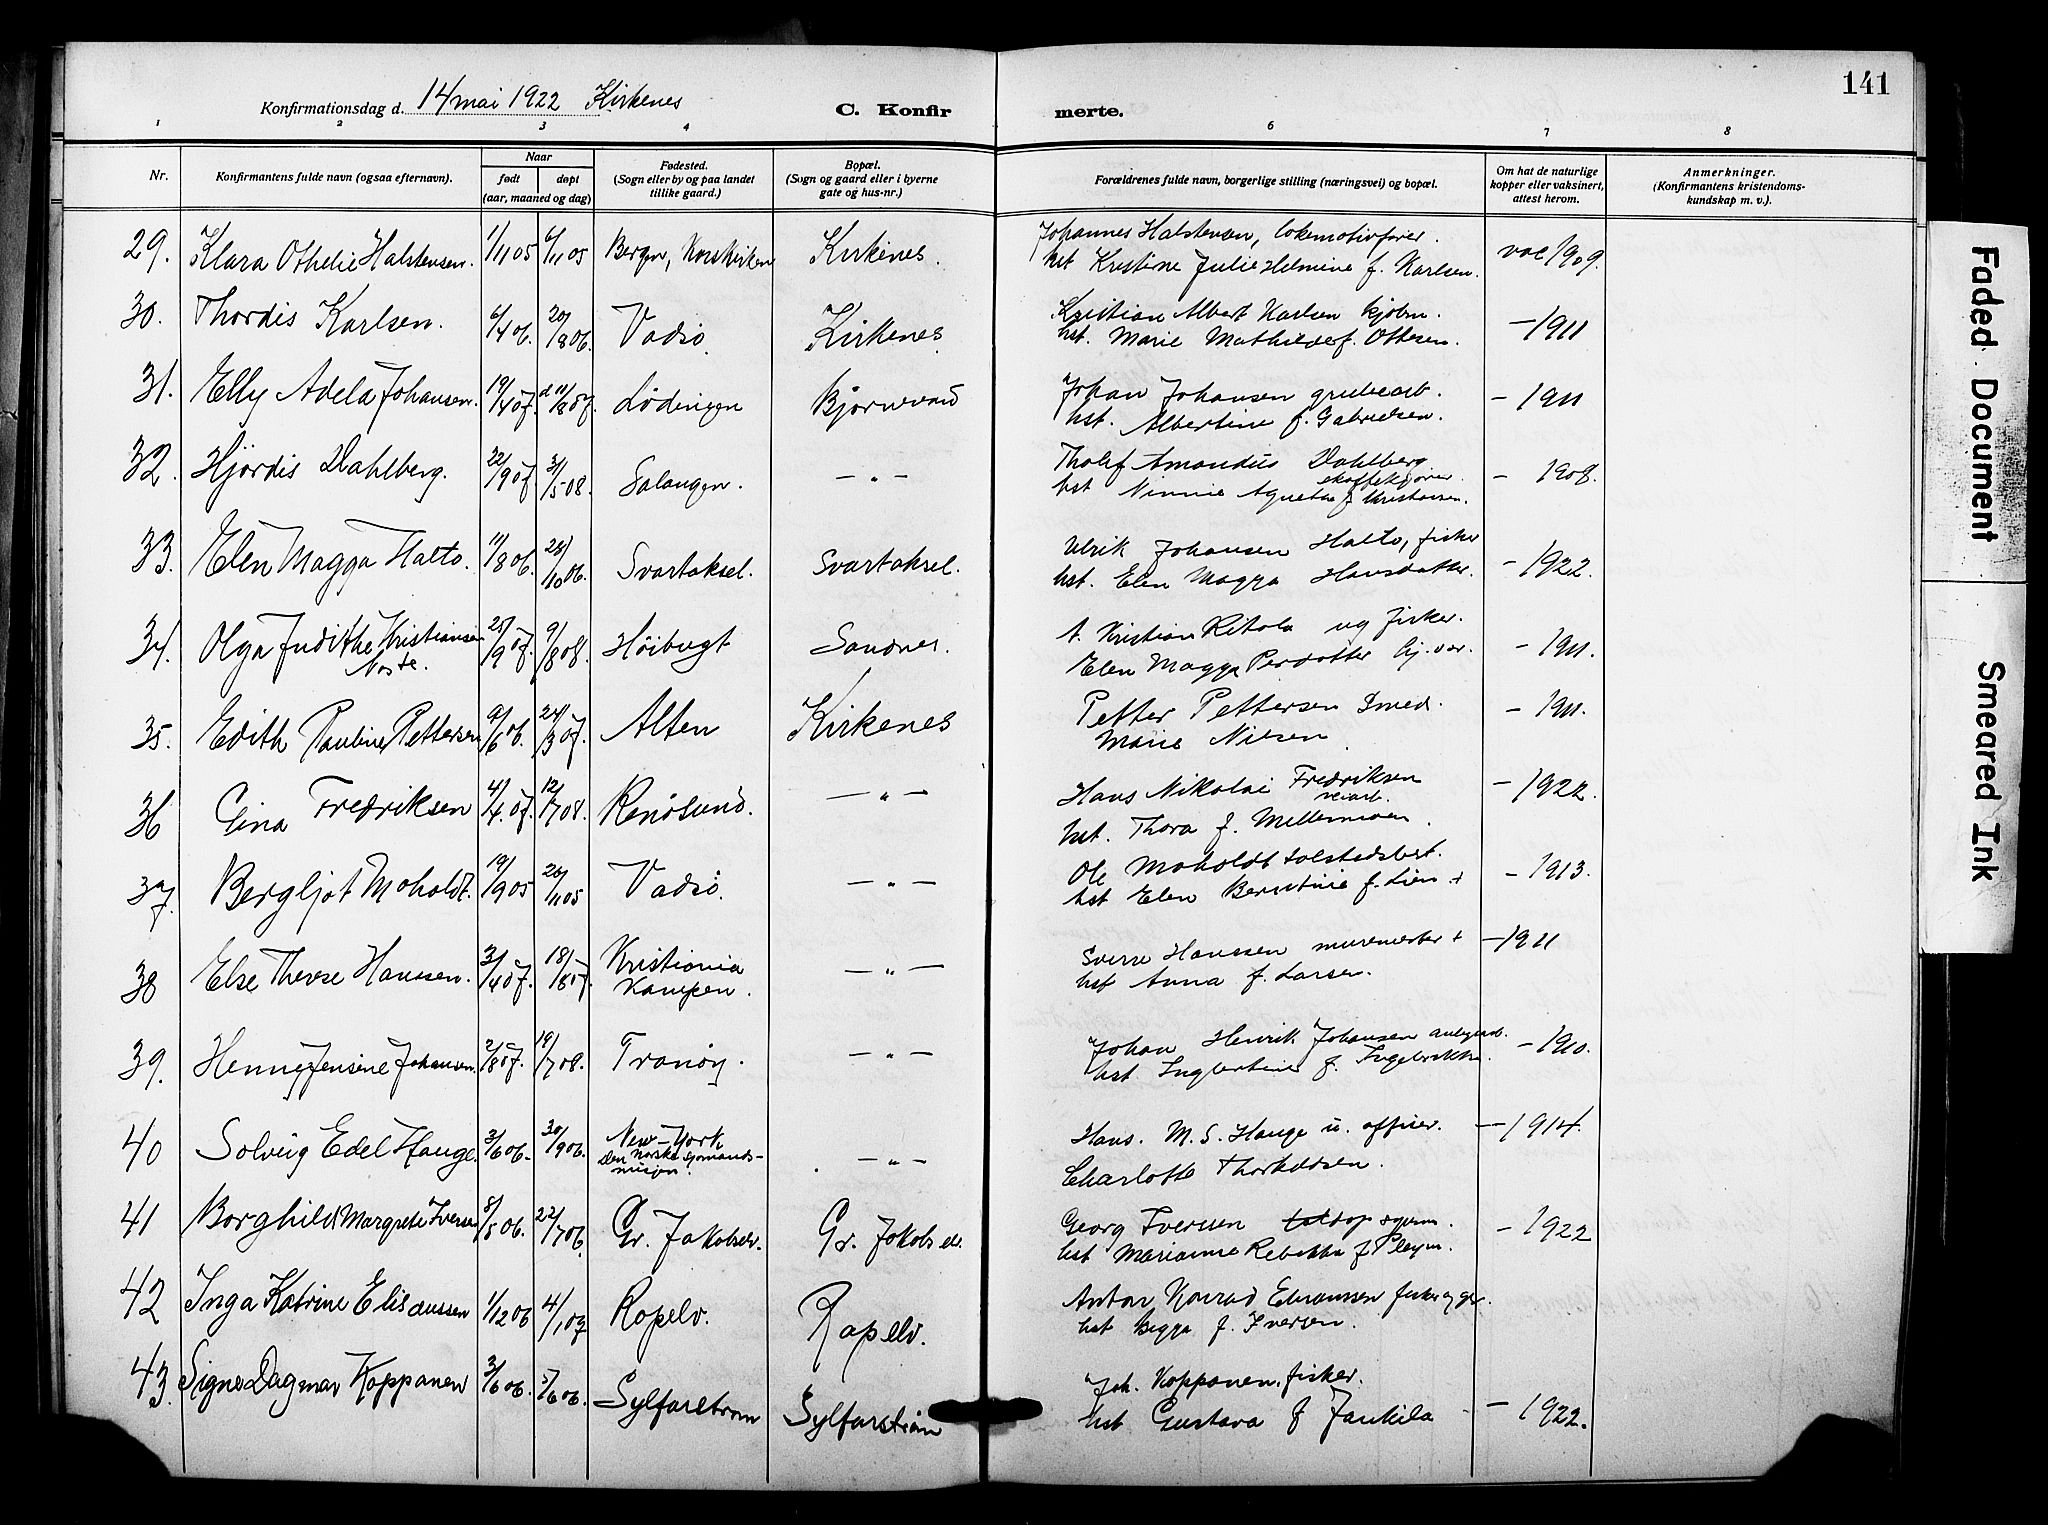 141
Konfirmationsdag d. 14 mai 1922 Kirkenes
C. Konfirmerte.
1 2 3 4 5 6 7 8
Nr. Konfirmantens fulde navn (ogsaa efternavn). Naar født døpt (aar, maaned og dag) Fødested. (Sogn eller by og paa landet tillike gaard.) Bopæl. (Sogn og gaard eller i byerne gate og hus-nr.) Forældrenes fulde navn, borgerlige stilling (næringsvei) og bopæl. Om hat de naturlige kopper eller vaksinert, attest herom. Anmerkninger. (Konfirmantens kristendoms-kundskap m. v.).
29. Klara Othelie Halstensen. 1/11 05 6/11 05 Bergen, Korskirken Kirkenes. Johannes Halstensen, lokomotivfører. vac 1909.
hst Kristine Julie Helmine f. Karlsen.
30. Thordis Karlsen. 6/4 06. 20/8 06. Vadsø Kirkenes Kristian Albert Karlsen kjøbm. – 1911
hst. Marie Mathilde f. Ottesen.
31. Elly Adela Johansen. 19/4 07. d 11/8 07. Lødingen Bjørnevand Johan Johansen grubearb. – 1911
hst. Albertine f. Gabrielsen.
32. Hjørdis Dahlberg. 22/9 07. 3/5 08. Salangen. — „ — Tholf Amandus Dahlberg – 1908.
hst Ninnie Agneta f. Kristansen.
33. Elen Magga Halto. 11/8 06. 28/10 06. Svartaksel. Svartaksel. Ulrik Johansen Halto, fisker – 1922.
hst. Elen Magga Hansdatter.
34. Olga Judithe Kristiansen 25/9 07. 9/8 08. Høibugt Sandnes. Kristian Ritola ug fisker. – 1911.
Elen Magga Persdatter
35. Edith Pauline Pettersen 9/6 06. 24/3 07. Alten Kirkenes Petter Pettersen Smed. – 1911.
Marie Nilsen
36 Gina Fredriksen 4/4. 07. 12/7 08. Renøsund. — „ — Hans Nikolai Fredriksen – 1922.
veiarb.
hst. Thora f. Mellemmoen.
37. Bergljot Moholdt. 19/9 05 26/11 05 Vadsø. — „ — Ole Moholdt tolstedsbest. – 1913.
hst Elen Berntine f. Lien +
38 Else Therse Hanssen. 3/4 07. 18/8 07. Kristiania Kampen. — „ — Sverre Hanssen muremester + – 1911
hst Anna f. Larsen.
39. Henny Jensine Johansen. 2/8 07. 19/7 08. Tranøy. — „ — Johan Henrik Johansen – 1910.
hst. Ingbertine f.
40 Solveig Edel Hauge. 3/6 06. 30/9 06. New-York Den norske sjømands-misjon. — „ — Hans. M. S. Hauge u. officer. – 1914.
Charlotte Thorkildsen.
41 Borghild Margrete Iversen 8/5 06. 22/7 06. Gr. Jakobselv. Gr. Jakobs elv. Georg Iversen – 1922
hst Marianne Rebekka f.
42 Inga Katrine Elisæussen 1/12 06 4/1 07 Ropelv. Ropelv. Anton Konrad
hst Bigga f. Iversen.
43. Signe Dagmar Kopponen 3/6 06. 5/6 06. Sylfarstrøm Sylfarstrøm Joh. Kopponen, fisker. – 1922.
hst Gustava f Jankila
Faded Document
Smeared Ink